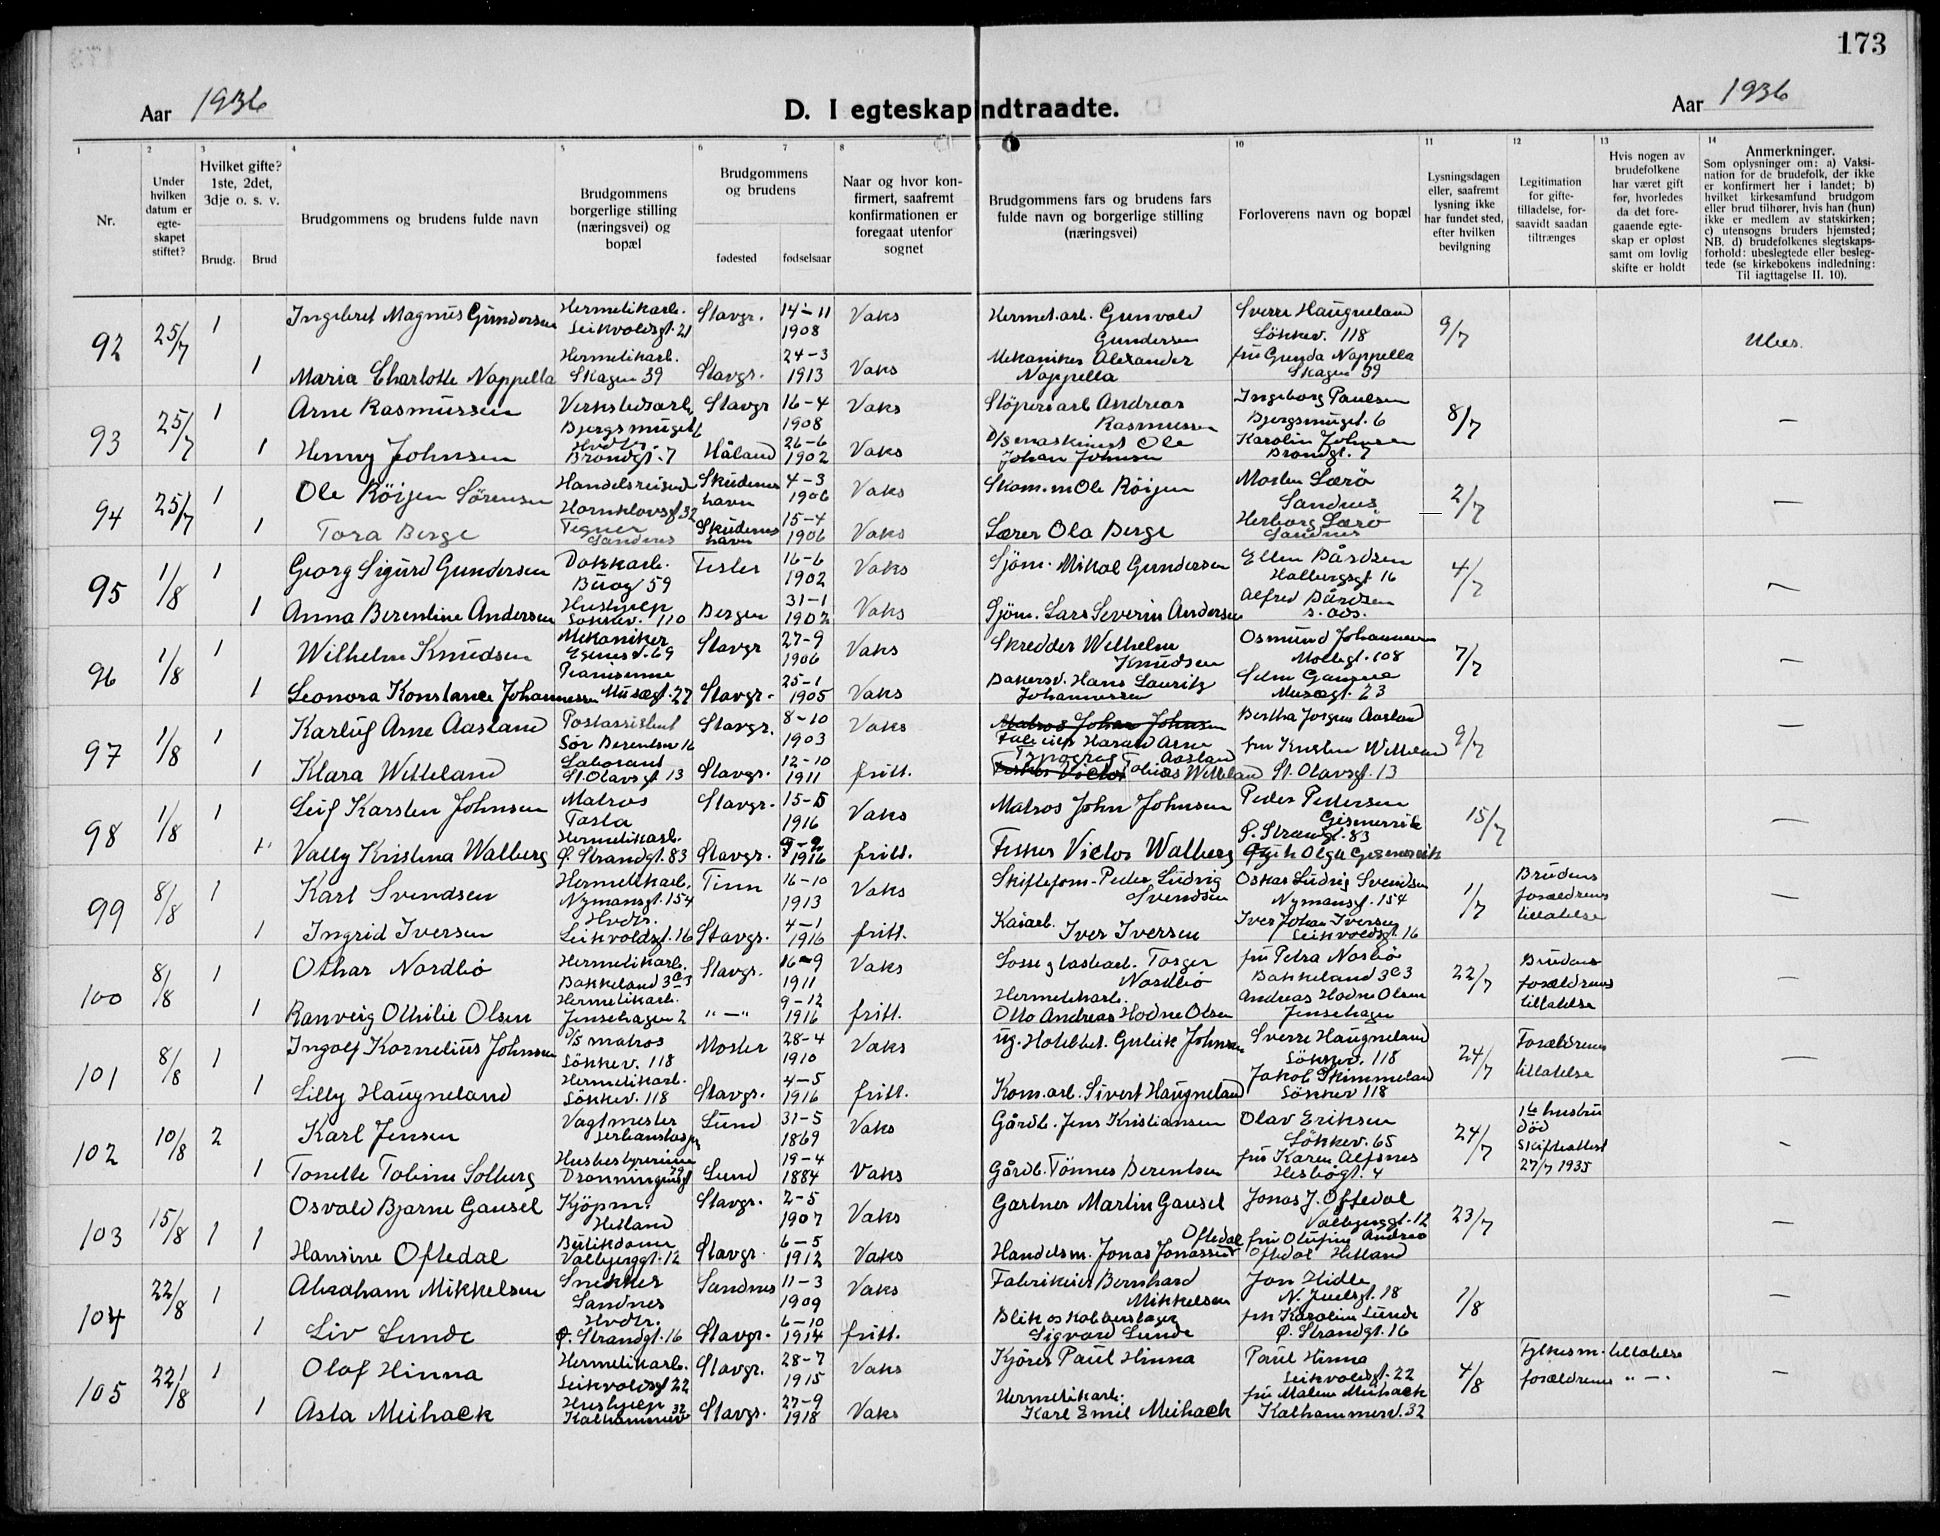 173
Aar 1936
D. I egteskap indtraadte.
Aar 1936
1 2 3 4 5 6 7 8 10 11 12 13 14
Nr.
Under hvilken datum er egteskapet stiftet?
Hvilket gifte? 1ste, 2det, 3dje o. s. v.
Brudg. Brud
Brudgommens og brudens fulde navn
Brudgommens borgerlige stilling (næringsvei) og bopæl
Brudgommens og brudens
fødested fødselsaar
Naar og hvor konfirmert, saafremt konfirmationen er foregaat utenfor sognet
Brudgommens fars og brudens fars fulde navn og borgerlige stilling (næringsvei)
Forloverens navn og bopæl
Lysningsdagen eller, saafremt lysning ikke har fundet sted, efter hvilken bevilgning
Legitimation for giftetilladelse, forsaavidt saadan tiltrænges
Hvis nogen av brudefolkene har været gift før, hvorledes da det foregaaende egteskap er opløst samt om lovlig skifte er holdt
Anmerkninger.
Som oplysninger om: a) Vaksination for de brudefolk, der ikke er konfirmert her i landet; b) hvilket kirkesamfund brudgom eller brud tilhører, hvis han (hun) ikke er medlem av statskirken; c) utensogns bruders hjemsted; NB. d) brudefolkenes slegtskapsforhold: ubeslegtede eller beslegtede (se kirkebokens indledning: Til iagttagelse II. 10).
92 25/7 1 Ingebret Magnus Gundersen Hermetikarb. Leikvoldsgt. 21 Stavgr. 14-11 1908 Vaks Hermet.arb. Gunvald Gundersen Sverre Haugneland Lökkev. 118 9/7 Ubes.
1 Maria Charlotte Nappella Hermetikarb. Skagen 39 Stavgr. 24-3 1913 Vaks Mekaniker Alexander Nappella fru Gunda Nappella Skagen 39
93 25/7 1 Arne Rasmussen Verkstedsarb. Bjergsmuget 6 Stavgr 16-4 1908 Vaks Stöperiarb Andreas Rasmussen Ingeborg Paulsen Bjergsmuget. 6 8/7 —
1 Henny Johnsen Hvdtr. Brandgt. 7 Håland 26-6 1902 Vaks D/S maskinist Ole Johan Johnsen Karolin Johnsen Brandgt. 7
94 25/7 1 Ole Röijen Sörensen Handelsreisend Hornklovsgt 32 Skudenes havn 4-3 1906 Vaks Skom.m Ole Röijen Morten Lærö Sandnes 2/7 —
1 Tora Berge Tegner Sandnes Skudenes havn 15-4 1906 Vaks Lærer Ola Berge Herborg Lærö Sandnes
95 1/8 1 Georg Sigurd Gundersen Dokkarb. Buog 59 16-6 1902 Vaks Sjöm. Mikal Gundersen Ellen Bårdsen Holbergsgt 16 4/7 —
1 Anna Berentine Andersen Hushjelp Lökkev. 110 Bergen 31-1 1902 Vaks Sjöm. Lars Severin Andersen Alfred Bårdsen s. ads.
96 1/8 1 Wilhelm Knudsen Mekaniker Egenesv. 69 Stavgr 27-9 1906 Vaks Skredder Wilhelm Knudsen Osmund Johannessen Mollegt. 108 7/7 —
1 Leonora Konstance Johannessen Pianistinne Musegt. 27 Stavgr. 25-1 1905 Vaks Bakersv. Hans Lauritz Johannessen Musegt. 23
97 1/8 1 Karluf Arne Aasland Postassistent Sör Berentsv 16 Stavgr. 8-10 1903 Vaks Matros Johan Johnsen Harald Arne Aasland Bertha Jorgine Aasland 9/7 —
1 Klara Wetteland Laborant St. Olavsgt 13 Stavgr. 12-10 1911 fritt. Typograf Fisker Victor Tobias Wetteland fru Kristine Wetteland St. Olavsgt. 13
98 1/8 1 Leif Karsten Johnsen Matros Tasta Stavgr. 15-5 1916 Vaks Matros John Johnsen Peder Pedersen Gismervik Ø. Strandgt. 83 15/7 —
1 Vally Kristina Walberg Hermetikarb. Ø. Strandgt. 83 Stavgr. 9-2 1916 fritt. Fisker Victor Walberg Olga Gismervik
99 8/8 1 Karl Svendsen Hermetikarb. Nymansgt. 154 Tinn 16-10 1913 Vaks Skiftefom. Peder Ludvig Svendsen Oskar Ludvig Svendsen Nymansgt. 154 1/7 Brudens forældrens tillatelse —
1 Ingrid Iversen Hvdtr. Leikvoldsgt. 16 Stavgr. 4-1 1916 fritt. Kaiarb. Iver Iversen Iver Johan Iversen Leikvoldsgt. 16
100 8/8 1 Othar Nordbö Hermetikarb. Bakkeland 3c3 Stavgr. 16-9 1911 Vaks Losse og lastearb. Torger Nordbö fru Petra Norbö Bakkeland 3c3 22/7 Brudens forældrens tillatelse —
1 Ranveig Othilie Olsen Hermetikarb. Jensehagen 2 "—" 9-12 1916 fritt. Hermetikarb. Otto Andreas Hodne Olsen Andreas Hodne Olsen Jensehagen
101 8/8 1 Ingolf Kornelius Johnsen D/S matros Lökkev. 118 Moster 28-4 1910 Vaks ug. Hotelbet. Guleik Johnsen Sverre Haugneland Lökkev. 118 24/7 Forældrens tillatelse —
1 Lilly Haugneland Hermetikarb. Lökkev. 118 Stavgr. 4-5 1916 fritt. Kom.arb. Sivert Haugneland Jakob Skimmeland Lökkev 118
102 10/8 2 Karl Jensen Vagtmester Lund 31-5 1869 Vaks Gårdb. Jens Kristiansen Olav Eriksen Lökkev. 65 24/7 1te hustru död Skifteattest 27/7 1935 —
1 Tonette Tobine Solberg Husbestyrerinne Dronningensgt 79 Lund 19-4 1884 Vaks Gårdb. Tönnes Berentsen fru Karen Alfsnes Hesbögt. 4
103 15/8 1 1 Osvald Bjarne Gausel Kjöpm. Hetland Stavgr. 2-5 1907 Vaks Gartner Martin Gausel Jonas J. Oftedal Valbjerggt. 12 23/7 —
Hansine Oftedal Butikdame Valbjerggt. 12 Stavgr. 6-5 1912 Vaks Handelsm. Jonas Jonassen Oftedal fru Olufine Andrea Oftedal Hetland
104 22/8 1 Abraham Mikkelsen Snekker Sandnes Sandnes 11-3 1909 Vaks Fabrikeier Bernhard Mikkelsen Jon Hidle N. Juelsgt. 18 1/8 —
1 Liv Lunde Hvdtr. Ø. Strandgt. 16 Stavgr. 6-10 1914 fritt. Blik og kobberslager Sigvard Lunde fru Karoline Lunde Ø. Strandgt. 16
105 22/8 1 Olaf Hinna Hermetikarb. Leikvoldsgt 22 Stavgr. 28-7 1915 Vaks Kjörer Paul Hinna Paul Hinna Leikvoldsgt. 22 4/8 Fylkesm. tillatelse forældrenes "—" —
1 Asta Meihack Hushjelp Kalhammerv 32 Stavgr. 27-9 1918 Vaks Hermetikarb. Karl Emil Meihack fru Malene Meihack Kalhammerv. 32